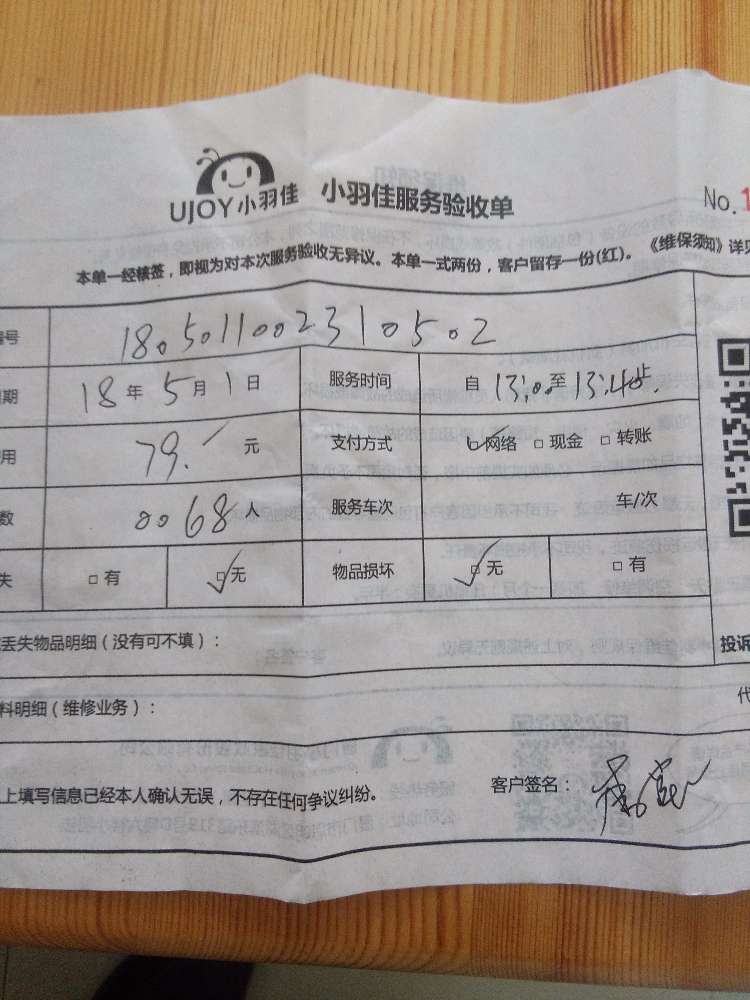 UJOY小羽佳 小羽佳服务验收单 No.1
本单一经核签，即视为对本次服务验收无异议。本单一式两份，客户留存一份(红)。《维保须知》详见
号 1805011002310502
期 18年5月1日 服务时间 自13:00至13:40止
用 79. 元 支付方式 网络 现金 转账
数 0068人 服务车次 车/次
失 有 无 物品损坏 无 有
丢失物品明细（没有可不填）： 投诉
料明细（维修业务）： 代
上填写信息已经本人确认无误，不存在任何争议纠纷。 客户签名：